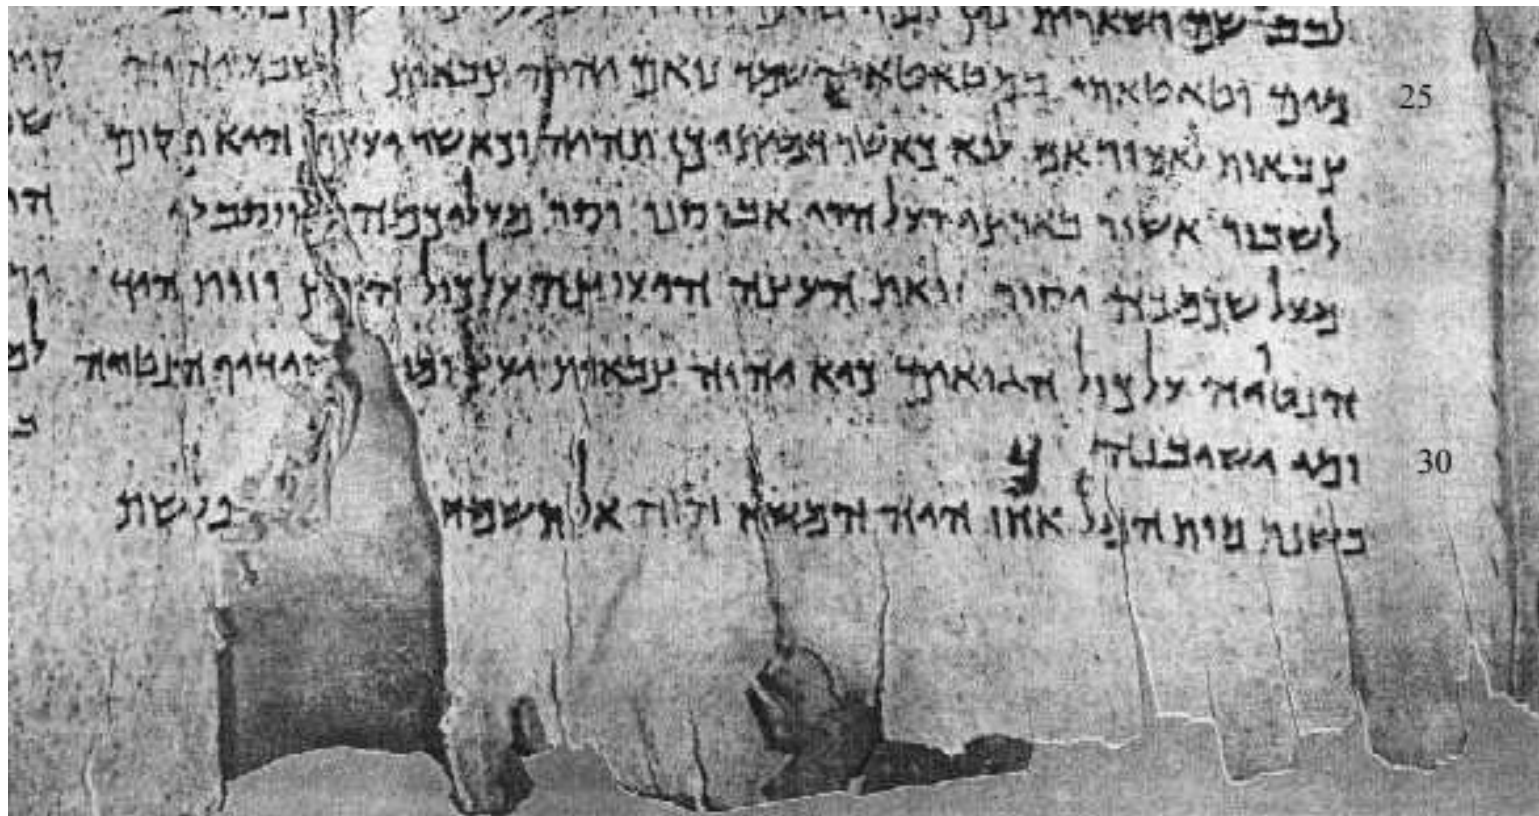 שם ושארית
25 מים וטאטאתי במטאטא השמד נואם יהוה צבאות נשבע יהוה
צבאות לאמור אם לא כאשר דמיתי כן תהיה וכאשר יעצתי היא תקום
לשבור אשור בארצי ועל הרי אבוסנו וסר מעליכמה וסבלו
מעל שכמכה יסור זאת העצה היעוצה על כול הארץ וזות היד
הנטויה על כול הגואים כיא יהוה צבאות יעץ ומי הנטויה
30 ומי ישיבנה
בשנת מות המלך אחז היה המשא הזה אל תשמחי